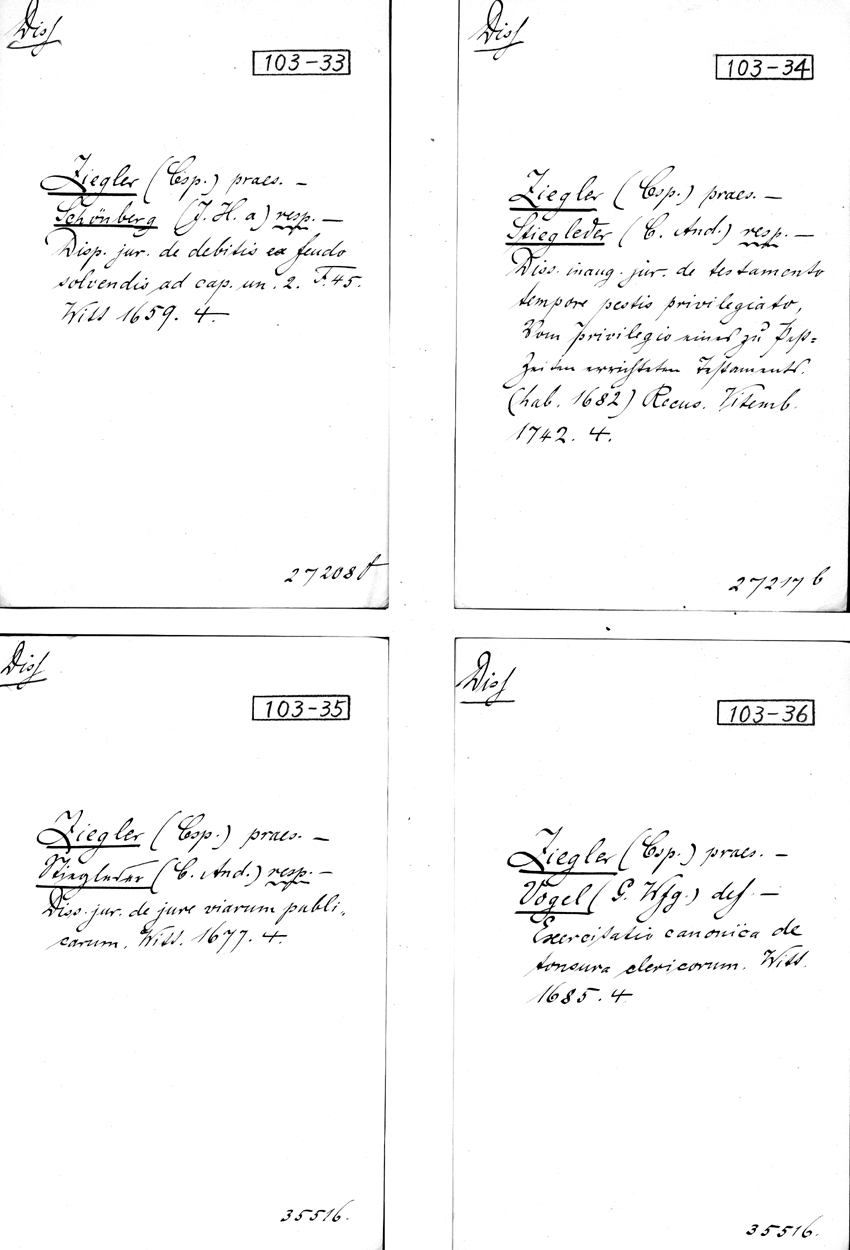 Diss
103-33
Ziegler (Csp.) praes. —
Schönberg (J. H. a) resp. —
Disp. jur. de debitis ex feudo
solvendis ad cap. un. 2. F. 45.
Witt 1659. 4.
27208 f
Diss
103-34
Ziegler (Csp.) praes. —
Stiegleder (C. And.) resp. —
Diss. inaug. jur. de testamento
tempore pestis privilegiato,
Vom Privilegio eines zu Pest-
Zeiten errichteten Testaments.
(hab. 1682) Recus. Vitemb.
1742. 4.
27217 b
Diss
103-35
Ziegler (Csp.) praes. —
Stiegleder (C. And.) resp. —
Diss. jur. de jure viarum publi-
carum. Witt. 1677. 4.
35516.
Diss
103-36
Ziegler (Csp.) praes. —
Vogel (G. Wfg.) def. —
Exercitatio canonica de
tonsura clericorum. Witt.
1685. 4
35516.